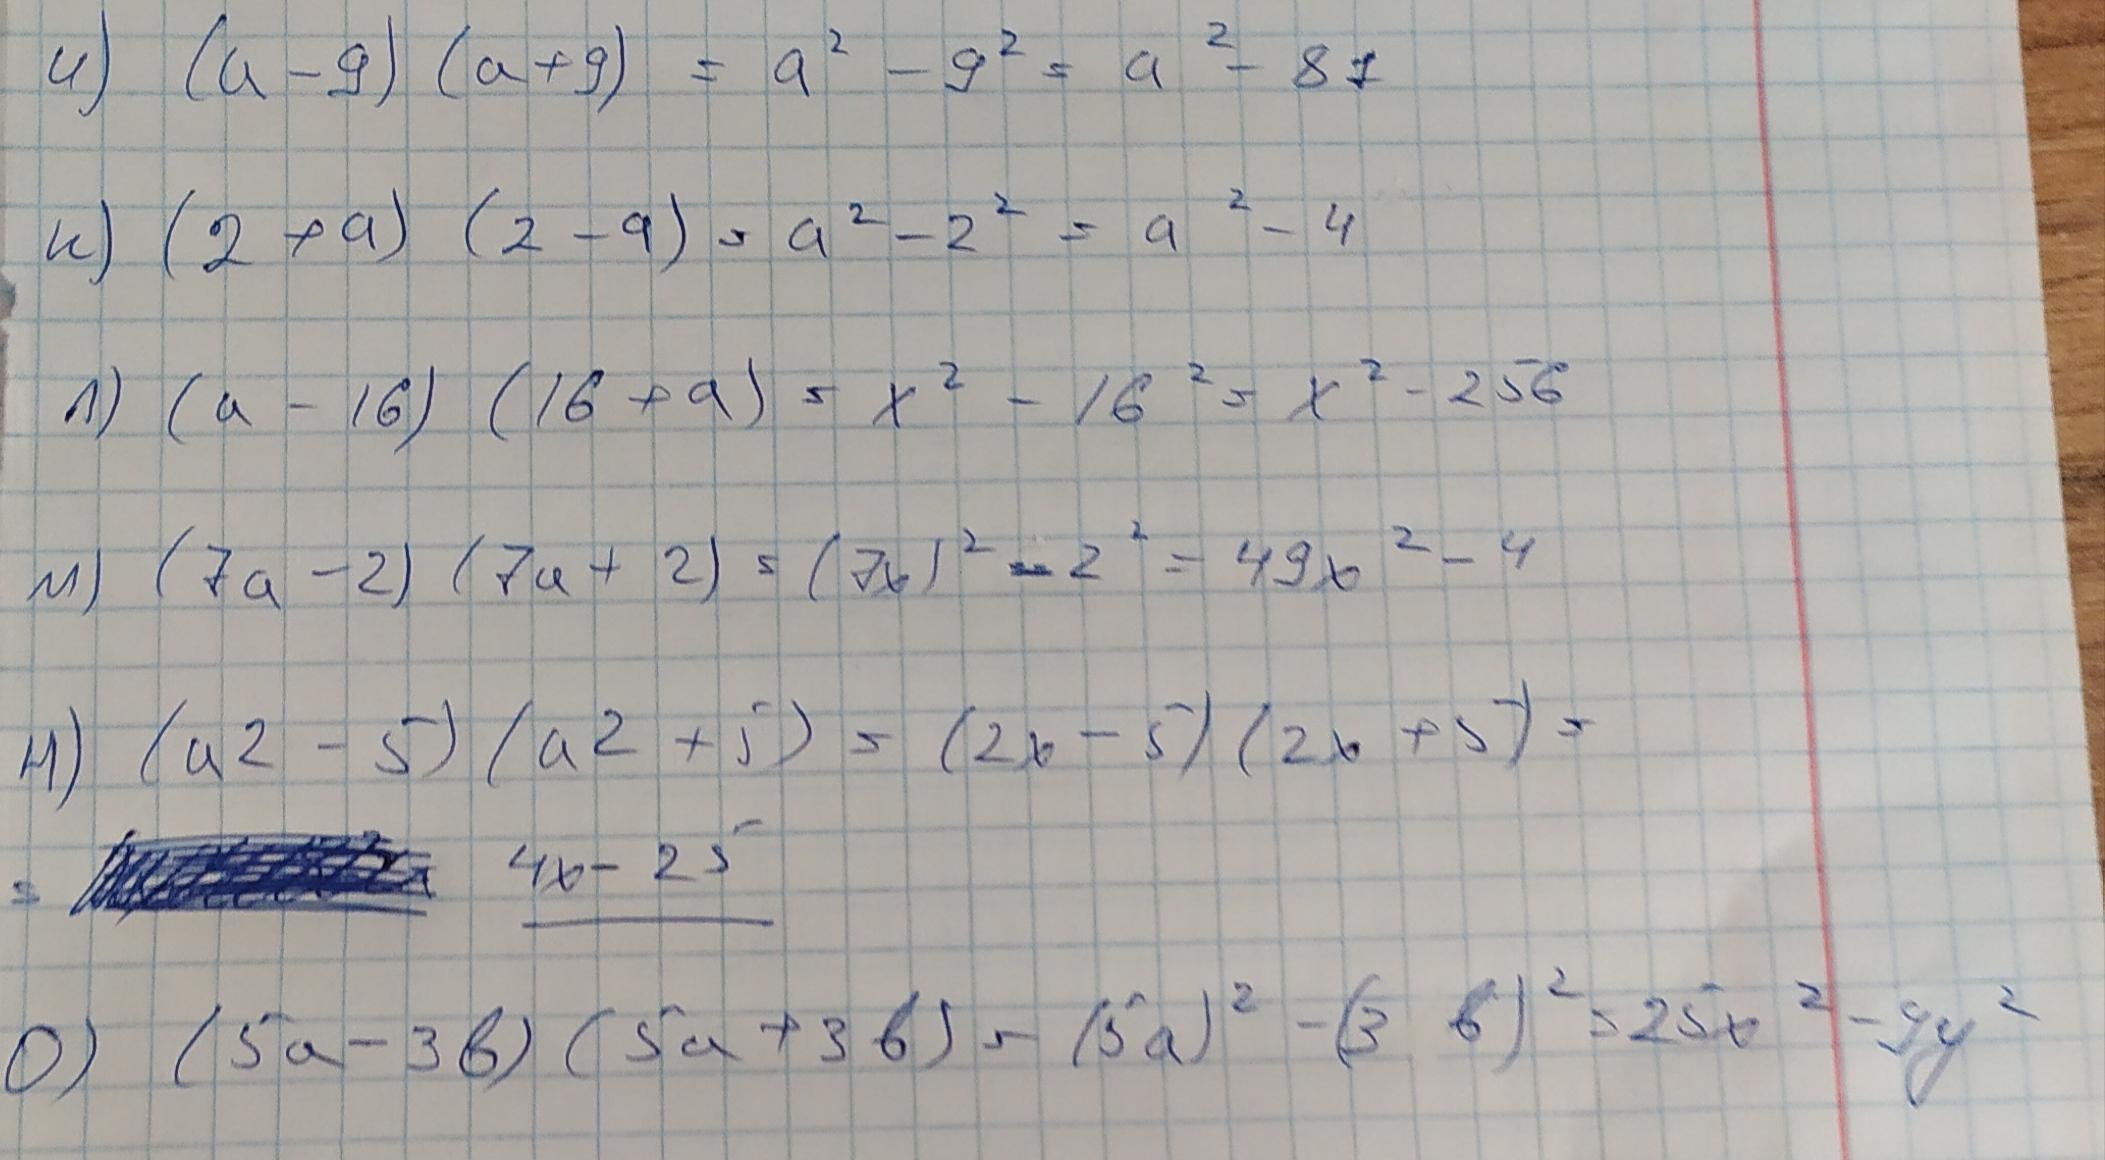 и) (a - 9) (a + 9) = a² - 9² = a² - 81
к) (2 + a) (2 - a) = a² - 2² = a² - 4
л) (a - 16) (16 + a) = x² - 16² = x² - 256
м) (7a - 2) (7a + 2) = (7x)² - 2² = 49x² - 4
н) (a2 - 5) (a2 + 5) = (2x - 5) (2x + 5) =
= 4x - 25
о) (5a - 3b) (5a + 3b) = (5a)² - (3 b)² = 25x² - 9y²